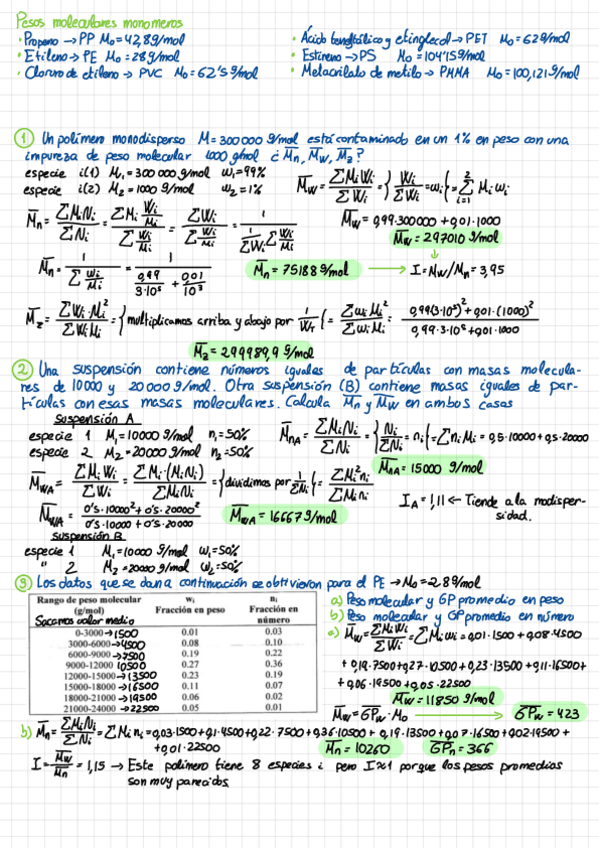 Pesos moleculares monomeros
· Propeno → PP M₀ = 42,8 g/mol
· Etileno → PE M₀ = 28 g/mol
· Cloruro de etileno → PVC M₀ = 62'5 g/mol
· Ácido tereftálico y etinglecol → PET M₀ = 62 g/mol
· Estireno → PS M₀ = 104'15 g/mol
· Metacrilato de metilo → PMMA M₀ = 100,121 g/mol
① Un polímero monodisperso M = 300 000 g/mol está contaminado en un 1% en peso con una
impureza de peso molecular 1000 g/mol ¿ M̅n, M̅w, M̅z?
especie i(1) M₁ = 300 000 g/mol ω₁ = 99%
especie i(2) M₂ = 1000 g/mol ω₂ = 1%
M̅w = ΣMiWi / ΣWi = { Wi / ΣWi = ωi } = Σ Mi ωi
M̅w = 0,99·300000 + 0,01·1000
M̅w = 297010 g/mol
M̅n = ΣMiNi / ΣNi = ΣMi (Wi/Mi) / Σ(Wi/Mi) = ΣWi / Σ(Wi/Mi) = 1 / ((1/ΣWi) Σ(Wi/Mi))
M̅n = 1 / Σ(ωi/Mi) = 1 / (0,99/3·10⁵ + 0,01/10³)
M̅n = 75188 g/mol → I = Mw/Mn = 3,95
M̅z = ΣWi·Mi² / ΣWiMi = { multiplicamos arriba y abajo por 1/WT } = ΣωiMi² / ΣωiMi = (0,99(3·10⁵)² + 0,01·(1000)²) / (0,99·3·10⁵ + 0,01·1000)
M̅z = 299989,9 g/mol
② Una suspensión contiene números iguales de partículas con masas molecula-
res de 10000 y 20000 g/mol. Otra suspensión (B) contiene masas iguales de par-
tículas con esas masas moleculares. Calcula M̅n y M̅w en ambos casos
Suspensión A
especie 1 M₁ = 10000 g/mol n₁ = 50%
especie 2 M₂ = 20000 g/mol n₂ = 50%
M̅nA = ΣMiNi / ΣNi = { Ni / ΣNi = ni } = Σ ni Mi = 0,5·10000 + 0,5·20000
M̅nA = 15000 g/mol
M̅wA = ΣMiWi / ΣWi = ΣMi·(MiNi) / ΣMiNi = { dividimos por 1/ΣNi } = ΣMi²ni / ΣMini
M̅wA = (0'5·10000² + 0'5·20000²) / (0'5·10000 + 0'5·20000)
M̅wA = 16667 g/mol
IA = 1,11 ← Tiende a la modisper-
sidad.
Suspensión B
especie 1 M₁ = 10000 g/mol ω₁ = 50%
" 2 M₂ = 20000 g/mol ω₂ = 50%
③ Los datos que se dan a continuación se obtuvieron para el PE → M₀ = 28 g/mol
Rango de peso molecular (g/mol) wi Fracción en peso ni Fracción en número
Sacamos valor medio
0-3000 → 1500 0.01 0.03
3000-6000 → 4500 0.08 0.10
6000-9000 → 7500 0.19 0.22
9000-12000 10500 0.27 0.36
12000-15000 → 13500 0.23 0.19
15000-18000 → 16500 0.11 0.07
18000-21000 → 19500 0.06 0.02
21000-24000 → 22500 0.05 0.01
a) Peso molecular y GP promedio en peso
b) Peso molecular y GP promedio en número
a) M̅w = ΣMiWi / ΣWi = ΣMi ωi = 0,01·1500 + 0,08·4500
+ 0,19·7500 + 0,27·10500 + 0,23·13500 + 0,11·16500 +
+ 0,06·19500 + 0,05·22500
M̅w = 11850 g/mol
M̅w = G̅P̅w·M₀ → G̅P̅w = 423
b) M̅n = ΣMiNi / ΣNi = ΣMi ni = 0,03·1500 + 0,1·4500 + 0,22·7500 + 0,36·10500 + 0,19·13500 + 0,07·16500 + 0,02·19500 +
+ 0,01·22500
M̅n = 10260 G̅P̅n = 366
I = M̅w / M̅n = 1,15 → Este polímero tiene 8 especies i pero I ≈ 1 porque los pesos promedios
son muy parecidos.